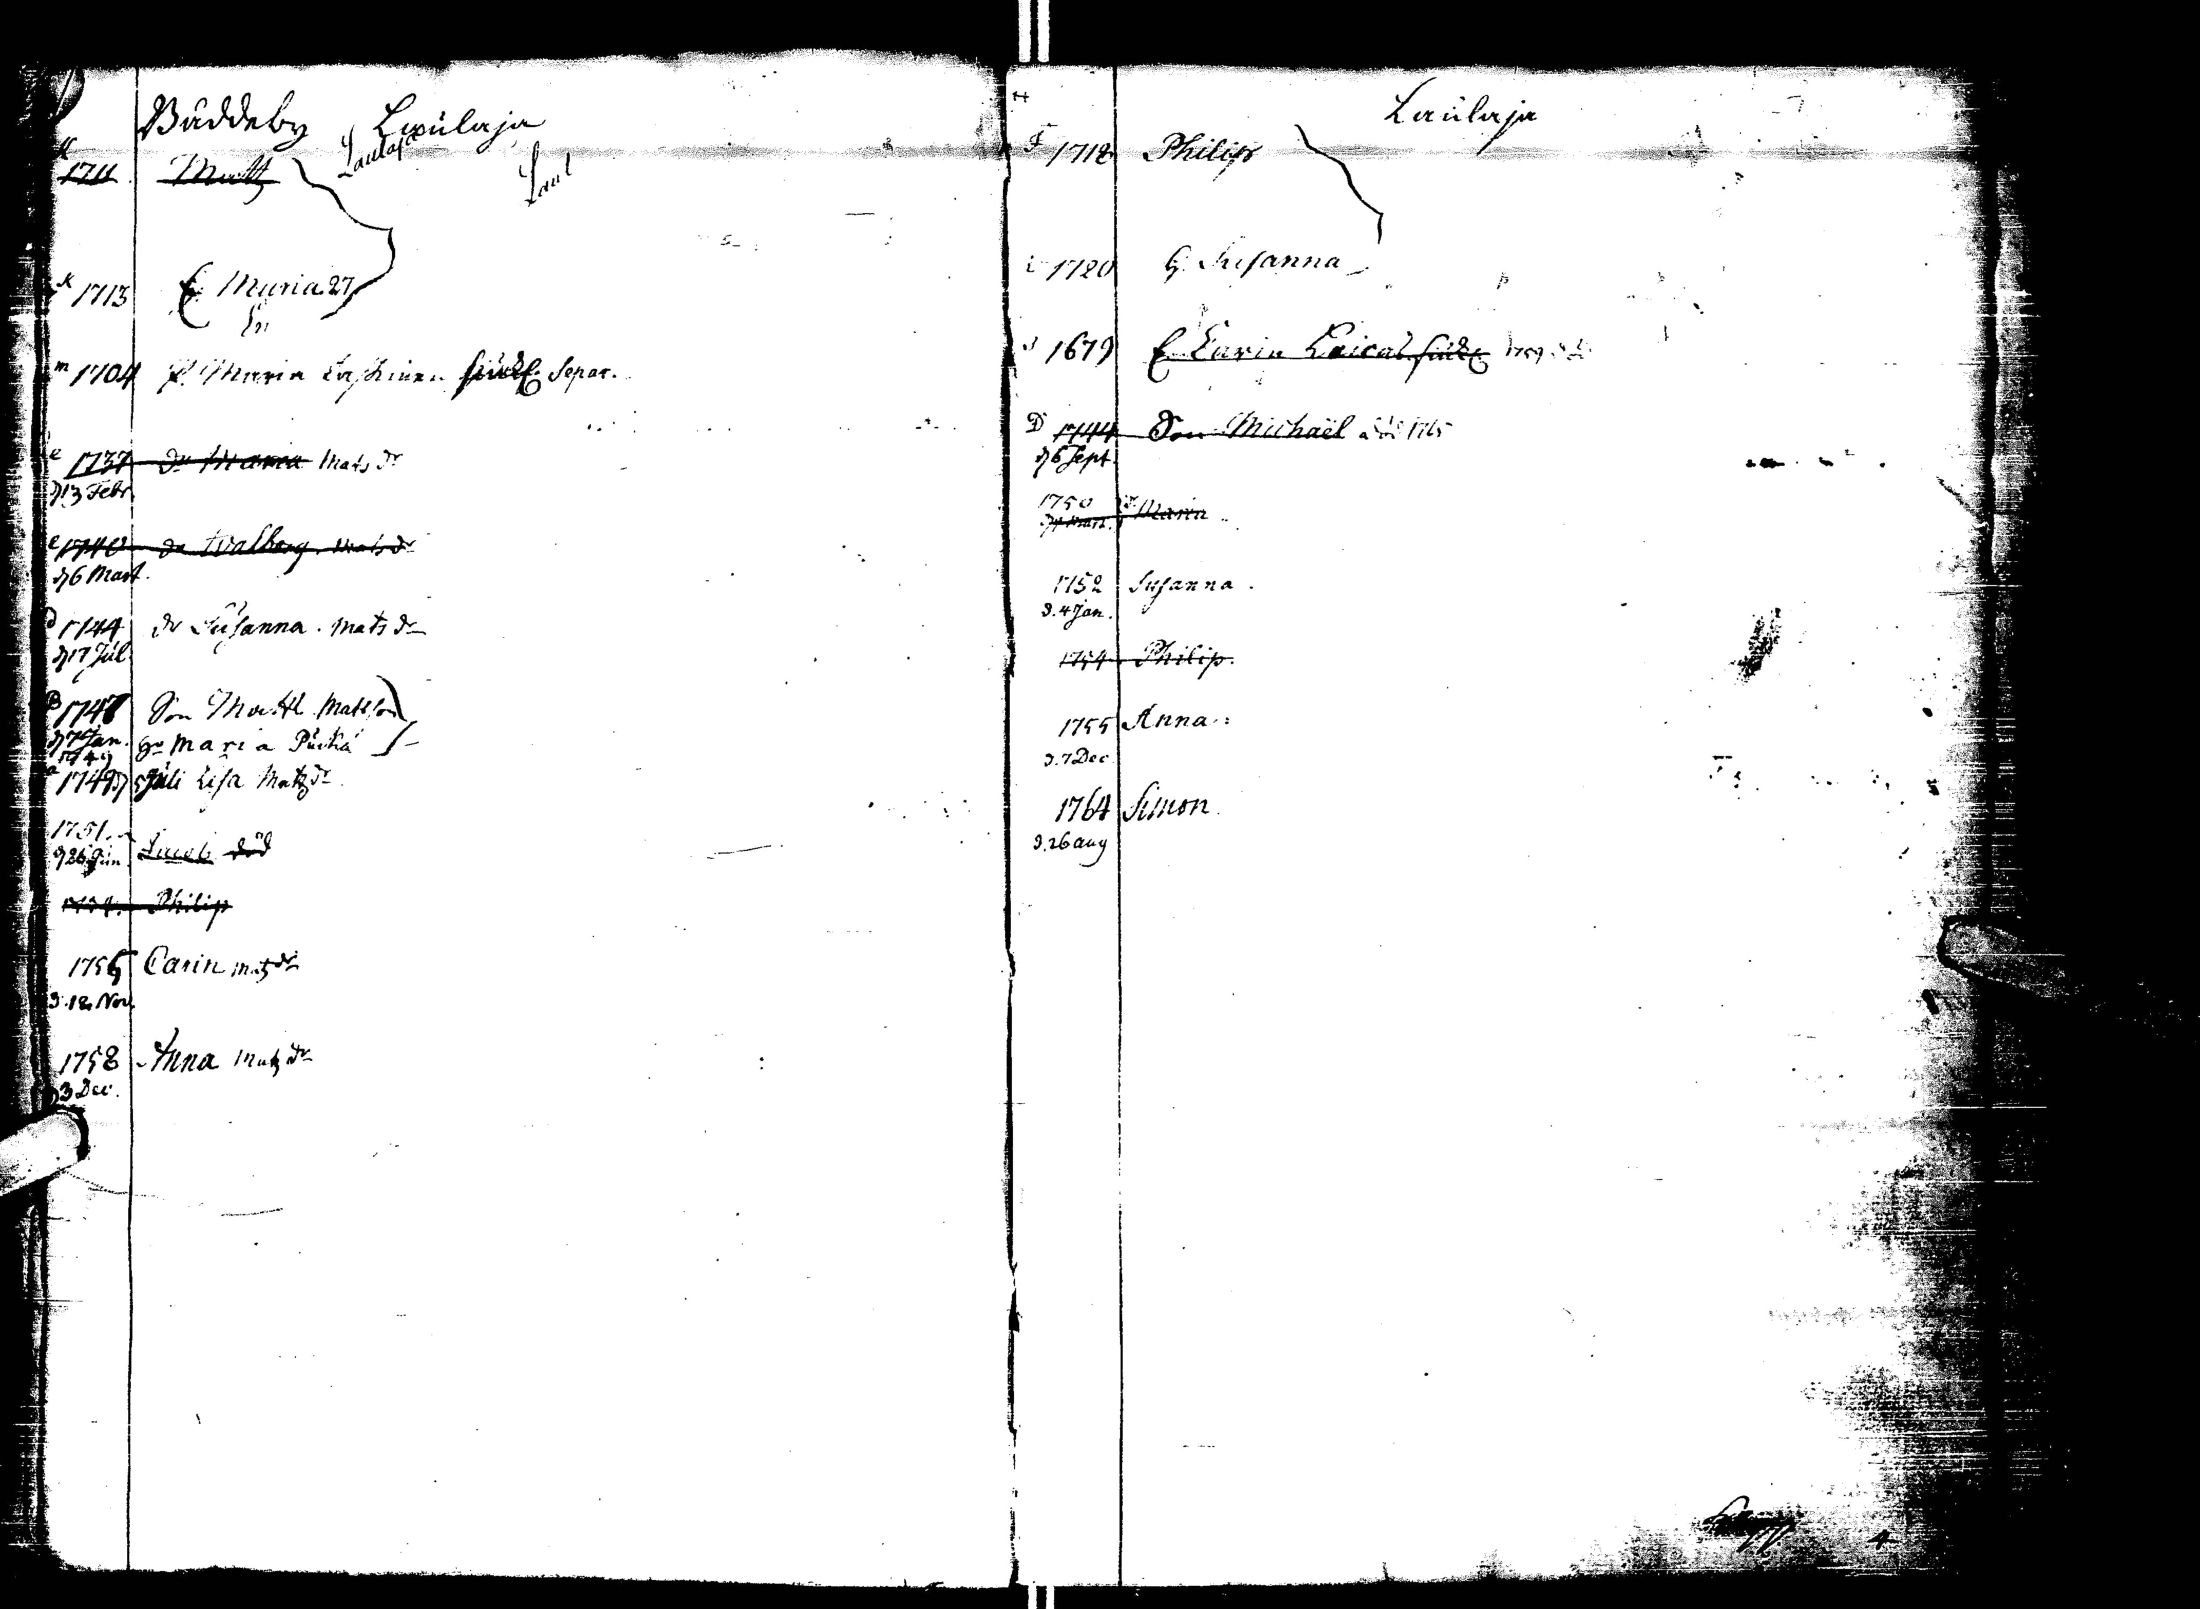 Båddeby Laulaja
Laulaja
Laul
1711 Matts
1713 E. Maria 27
1704 P. Maria Separ.
1737 dr Maria Mats dr
d 13 Febr.
1740 dr Walborg Mats dr
d 6 Mart.
1744 dr Susanna. Mats dr
d 17 Jul.
1748 Son Matts Matsson
d 7 Jan. hr Maria
1749
1749 d 5 Juli Lisa Matz dr
1751
d 26 Jun Jacob död
Philip
1756 Carin Matz dr
d. 18 Nov.
1758 Anna Matz dr
d 3 Dec.
Laulaja
1718 Philip
1720 h. Susanna
1679 E. Carin
1744 Son Michaël död 1765
d 6 Sept.
1750 Maria
1752 Susanna.
d. 4 Jan.
1754 Philip.
1755 Anna
d. 7 Dec
1764 Simon
d. 26 aug
4